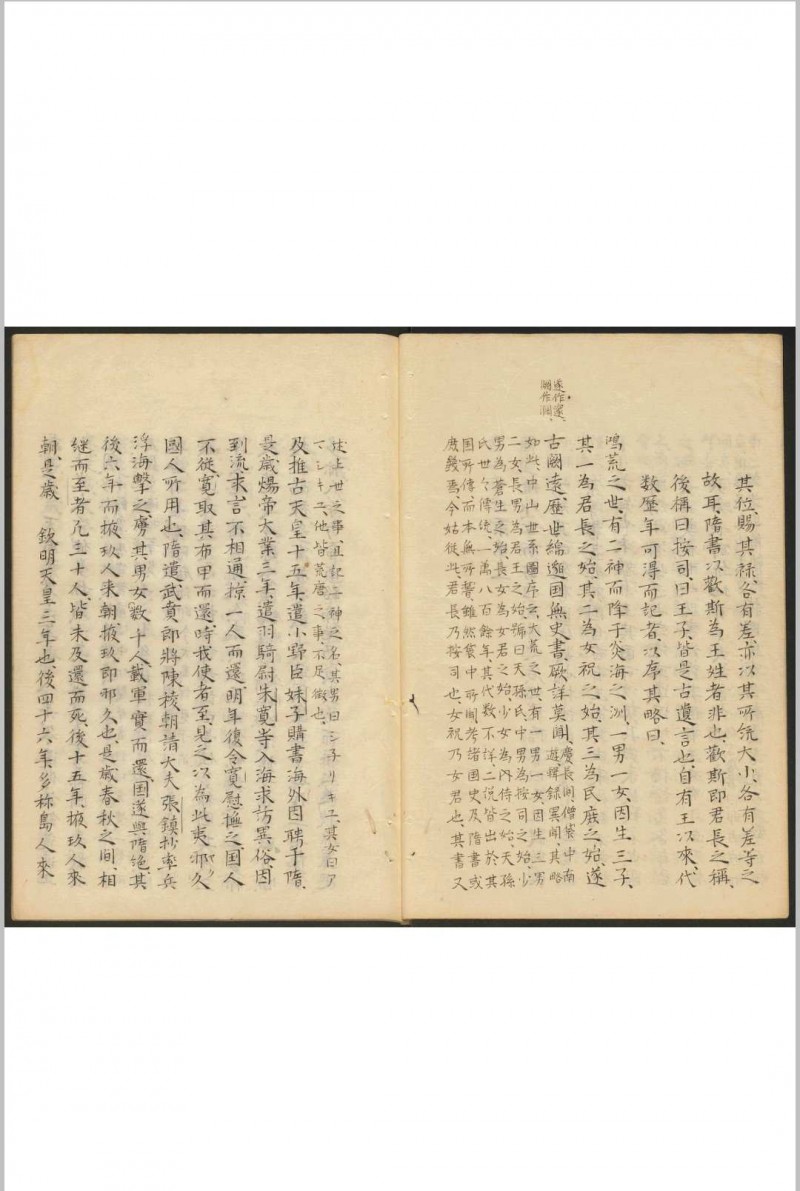 其位、賜其禄、各有差、亦以其所領大小、各有差等之
故耳、隋書以歡斯為王姓者非也、歡斯即君長之稱、
後稱曰按司、曰王子、皆是古遺言也、自有王以來、代
数歴年可得而記者、以序其略曰、
遂作還、
關作洞、
鴻荒之世、有二神而降于炎海之洲、一男一女、因生三子、
其一為君長之始、其二為女祝之始、其三為民庶之始、遂
古闊遠、歴世綿邈、国無史書、厥詳莫聞、慶長間僧袋中南
遊、輯録異聞、其略
如此、中山世系圖序云、大荒之世、有一男一女、因生三男
二女、長男為君王之始、號曰天孫氏、中男為按司之始、少
男為蒼生之始、長女為女君之始、少女為内侍之始、天孫
氏世々傳統、一萬八百餘年、其代数不詳、二説皆出於其
国所傳、而本無所誓、雖然袋中所聞、考諸國史及隋書、或
庶幾焉、今姑従此、君長乃按司也、女祝乃女君也、其書又
述上世之事、且記二神之名、其男曰シ子リキユ、其女曰ア
マシキユ、他皆荒唐之事、不足徴也、
及推古天皇十五年、遣小野臣妹子購書海外、因聘于隋、
是歳煬帝大業三年、遣羽騎尉朱寛等入海求訪異俗、因
到流求、言不相通、掠一人而還、明年復令寛慰撫之、国人
不從、寛取其布甲而還、時我使者至、見之以為此夷邪久
國人所用也、隋遣武賁郎將陳稜朝請大夫張鎮抄率兵
浮海擊之、虜其男女數十人載軍實而還、国遂與隋絶、其
後六年而掖玖人来朝、掖玖即邪久也、是歳春秋之間、相
継而至者凡三十人、皆未及還而死、後十五年、掖玖人來
朝、是歳　欽明天皇三年也、後四十六年、多祢島人來